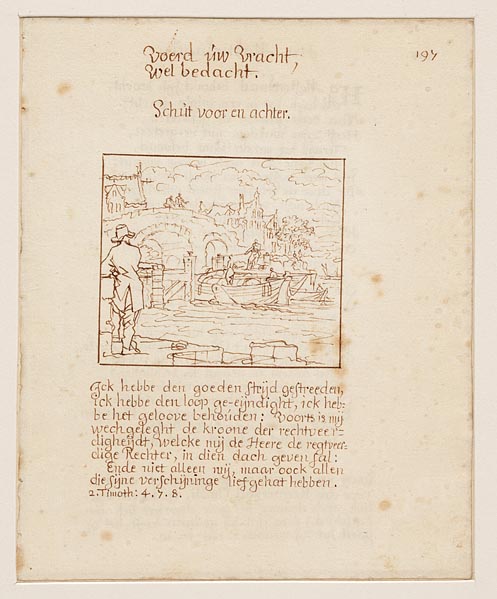 197
Voerd úw Vracht,
Wel bedacht.
Schút voor en achter.
Ick hebbe den goeden strijd gestreeden,
ick hebbe den loop ge-eijndight, ick heb=
be het geloove behoúden: Voorts is mij
wechgeleght de kroone der rechtveer=
digheijdt, welcke mij de Heere de regtveer=
dige Rechter, in dien dach geven sal:
Ende niet alleen mij, maar oock allen
die sijne verschijninge lief gehat hebben.
2. Timoth: 4. 7. 8.